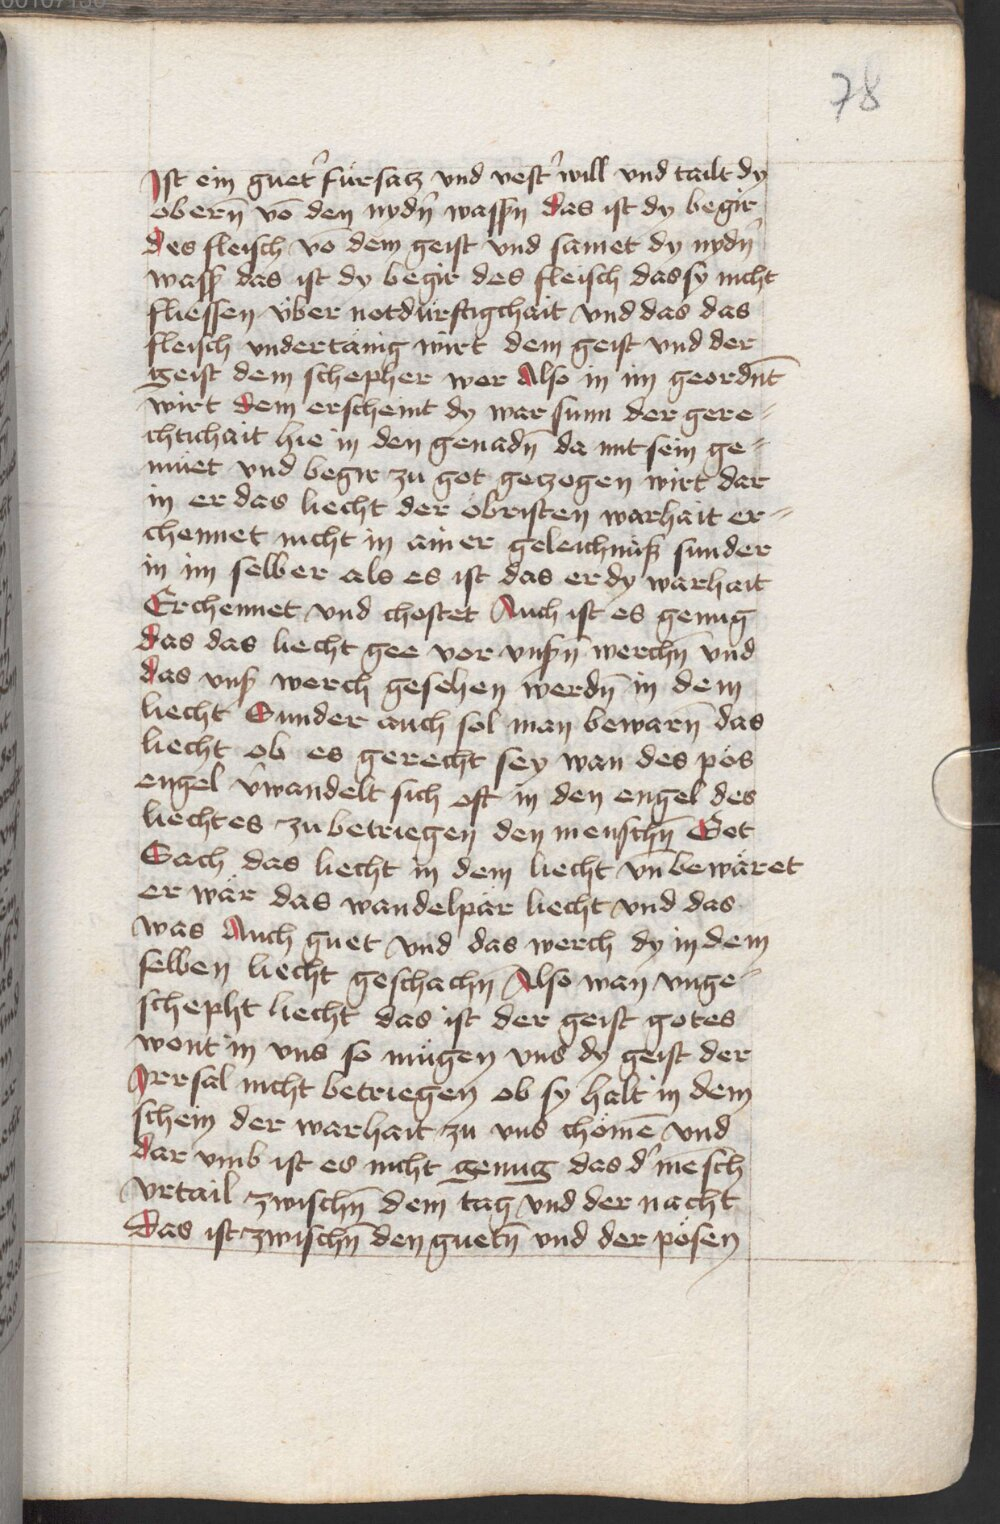 78
Ist ein guet' fürsacz vnd vest' will vnd tailt dy
obern̄ vō den nydn̄ wassn̄ das ist dy begir
des fleisch vō dem geist vnd samet dy nydn̄
wass' das ist dy begir des fleisch das sy nicht
fliessen vber notdürftigchait vnd das das
fleisch vndertänig wirt dem geist vnd der
geist dem schepher wer Also in im geordn̄t
wirt dem erscheint dy war sunn der gere⸗
chtichait hie in den genadn̄ da mit sein ge⸗
müet vnd begir zu got geczogen wirt dar
in er das liecht der öbristen warhait er⸗
chennet nicht in ainer geleichnüß sunder
in im selber als es ist das er dy warhait
Erchennet vnd chostet Auch ist es genug
das das liecht gee vor vnsn̄ werchn̄ vnd
das vns' werch gesehen werdn̄ in dem
liecht Sunder auch sol man bewarn̄ das
liecht ob es gerecht sey wan des pös
engel v'wandelt sich oft in den engel des
liechtes zu betriegen den menschn̄ Got
Sach das liecht in dem liecht vn̄ bewäret
er wär das wandelpär liecht vnd das
was Auch guet vnd das werch dy in dem
selben liecht geschachn̄ Also wan vnge⸗
schepht liecht das ist der geist gotes
wont in vns so mügen vns dy geist der
Irrsal nicht betriegen ob sy halt in dem
schein der warhait zu vns chömē vnd
dar vmb ist es nicht genug das d' mēsch
vrtail zwischn̄ dem tag vnd der nacht
Das ist zwischn̄ den guetn̄ vnd der pösen